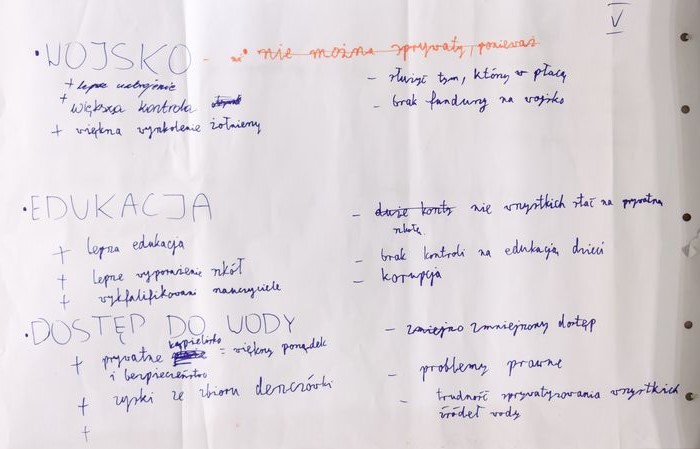 V
• WOJSKO - nie można sprywaty, ponieważ
+ lepsze uzbrojenie
+ większa kontrola
+ większa wyszkolenie żołnierzy
- służyć tym, którzy w płacą
- brak funduszy na wojsko
• EDUKACJA
+ lepsza edukacja
+ lepsze wyposażenie szkół
+ wykfalifikowani nauczyciele
- duże koszty nie wszystkich stać na prywatną
szkołę
- brak kontroli na edukacją dzieci
- korupcja
• DOSTĘP DO WODY
+ prywatne kąpielisko = większy porządek
i bezpieczeństwo
+ zyski ze zbioru deszczówki
+
- zmniejszony dostęp
- problemy prawne
- trudność sprywatyzowania wszystkich
źródeł wody